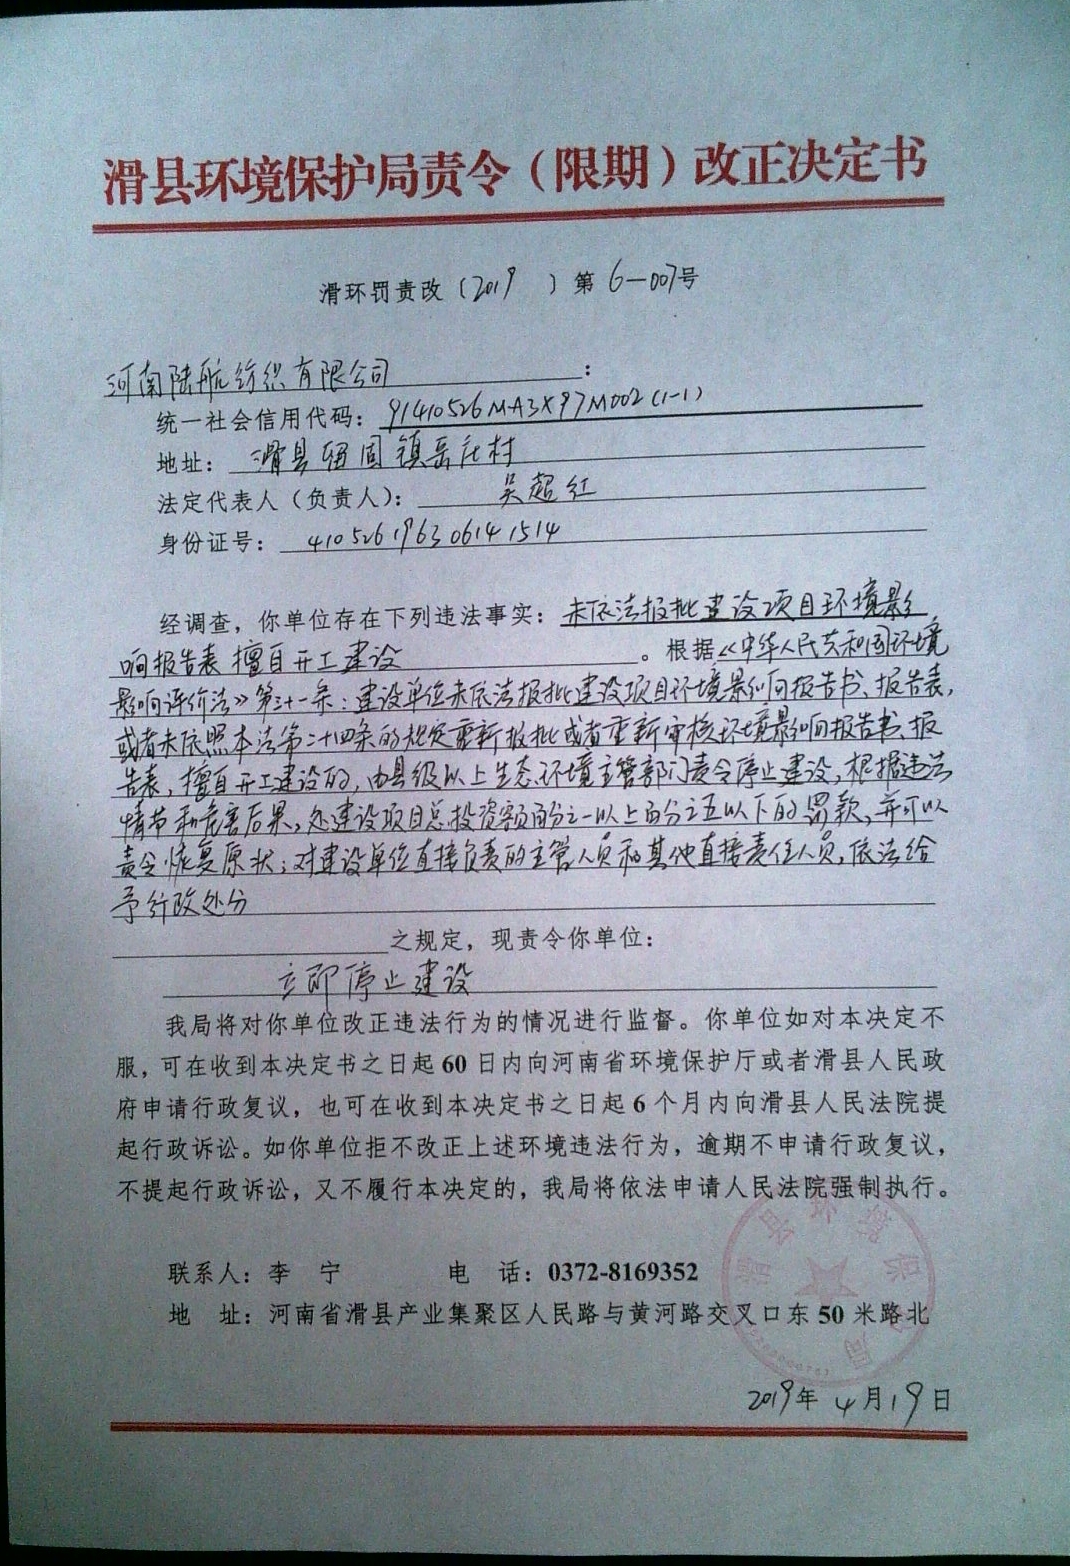 滑县环境保护局责令（限期）改正决定书
滑环罚责改（2019 ）第 6—007号
河南陆航纺织有限公司：
统一社会信用代码：91410526MA3X97M002(1-1)
地址：滑县留固镇岳庄村
法定代表人（负责人）：吴超红
身份证号：410526196306141514
经调查，你单位存在下列违法事实：未依法报批建设项目环境影
响报告表擅自开工建设。根据《中华人民共和国环境
影响评价法》第三十一条：建设单位未依法报批建设项目环境影响报告书、报告表，
或者未依照本法第二十四条的规定重新报批或者重新审核环境影响报告书、报
告表，擅自开工建设的，由县级以上生态环境主管部门责令停止建设，根据违法
情节和危害后果，处建设项目总投资额百分之一以上百分之五以下的罚款，并可以
责令恢复原状；对建设单位直接负责的主管人员和其他直接责任人员，依法给
予行政处分
之规定，现责令你单位：
立即停止建设
我局将对你单位改正违法行为的情况进行监督。你单位如对本决定不
服，可在收到本决定书之日起 60 日内向河南省环境保护厅或者滑县人民政
府申请行政复议，也可在收到本决定书之日起 6 个月内向滑县人民法院提
起行政诉讼。如你单位拒不改正上述环境违法行为，逾期不申请行政复议，
不提起行政诉讼，又不履行本决定的，我局将依法申请人民法院强制执行。
滑县环境保护局
联系人：李 宁 电 话：0372-8169352
地 址：河南省滑县产业集聚区人民路与黄河路交叉口东 50 米路北
2019年 4月19日